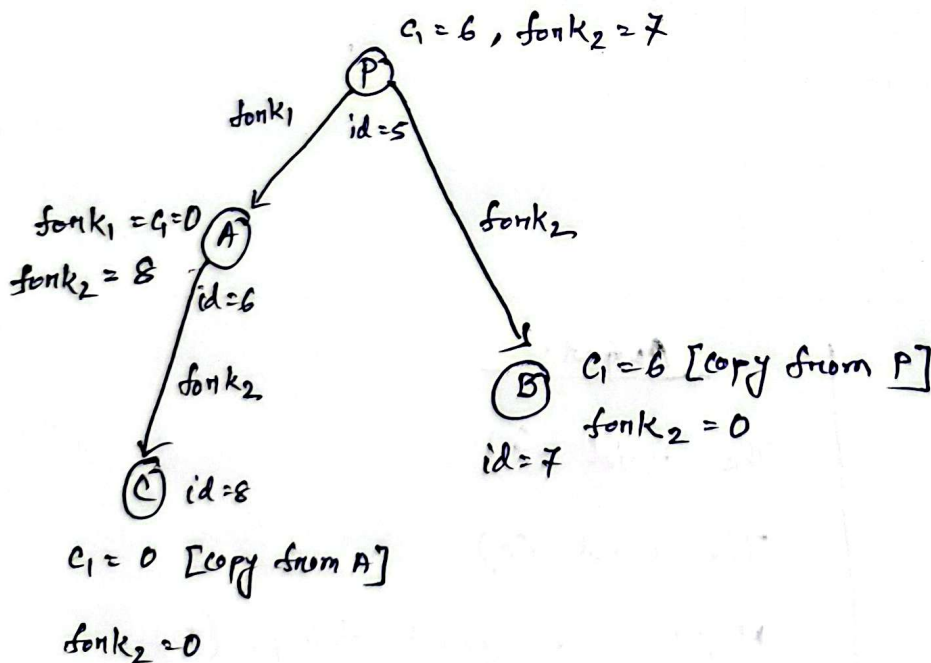 C₁ = 6, fork₂ = 7
P
fork₁
id = 5
fork₁ = C₁ = 0
A
fork₂ = 8
id = 6
fork₂
fork₂
B
C₁ = 6 [copy from P]
fork₂ = 0
id = 7
C
id = 8
C₁ = 0 [copy from A]
fork₂ = 0